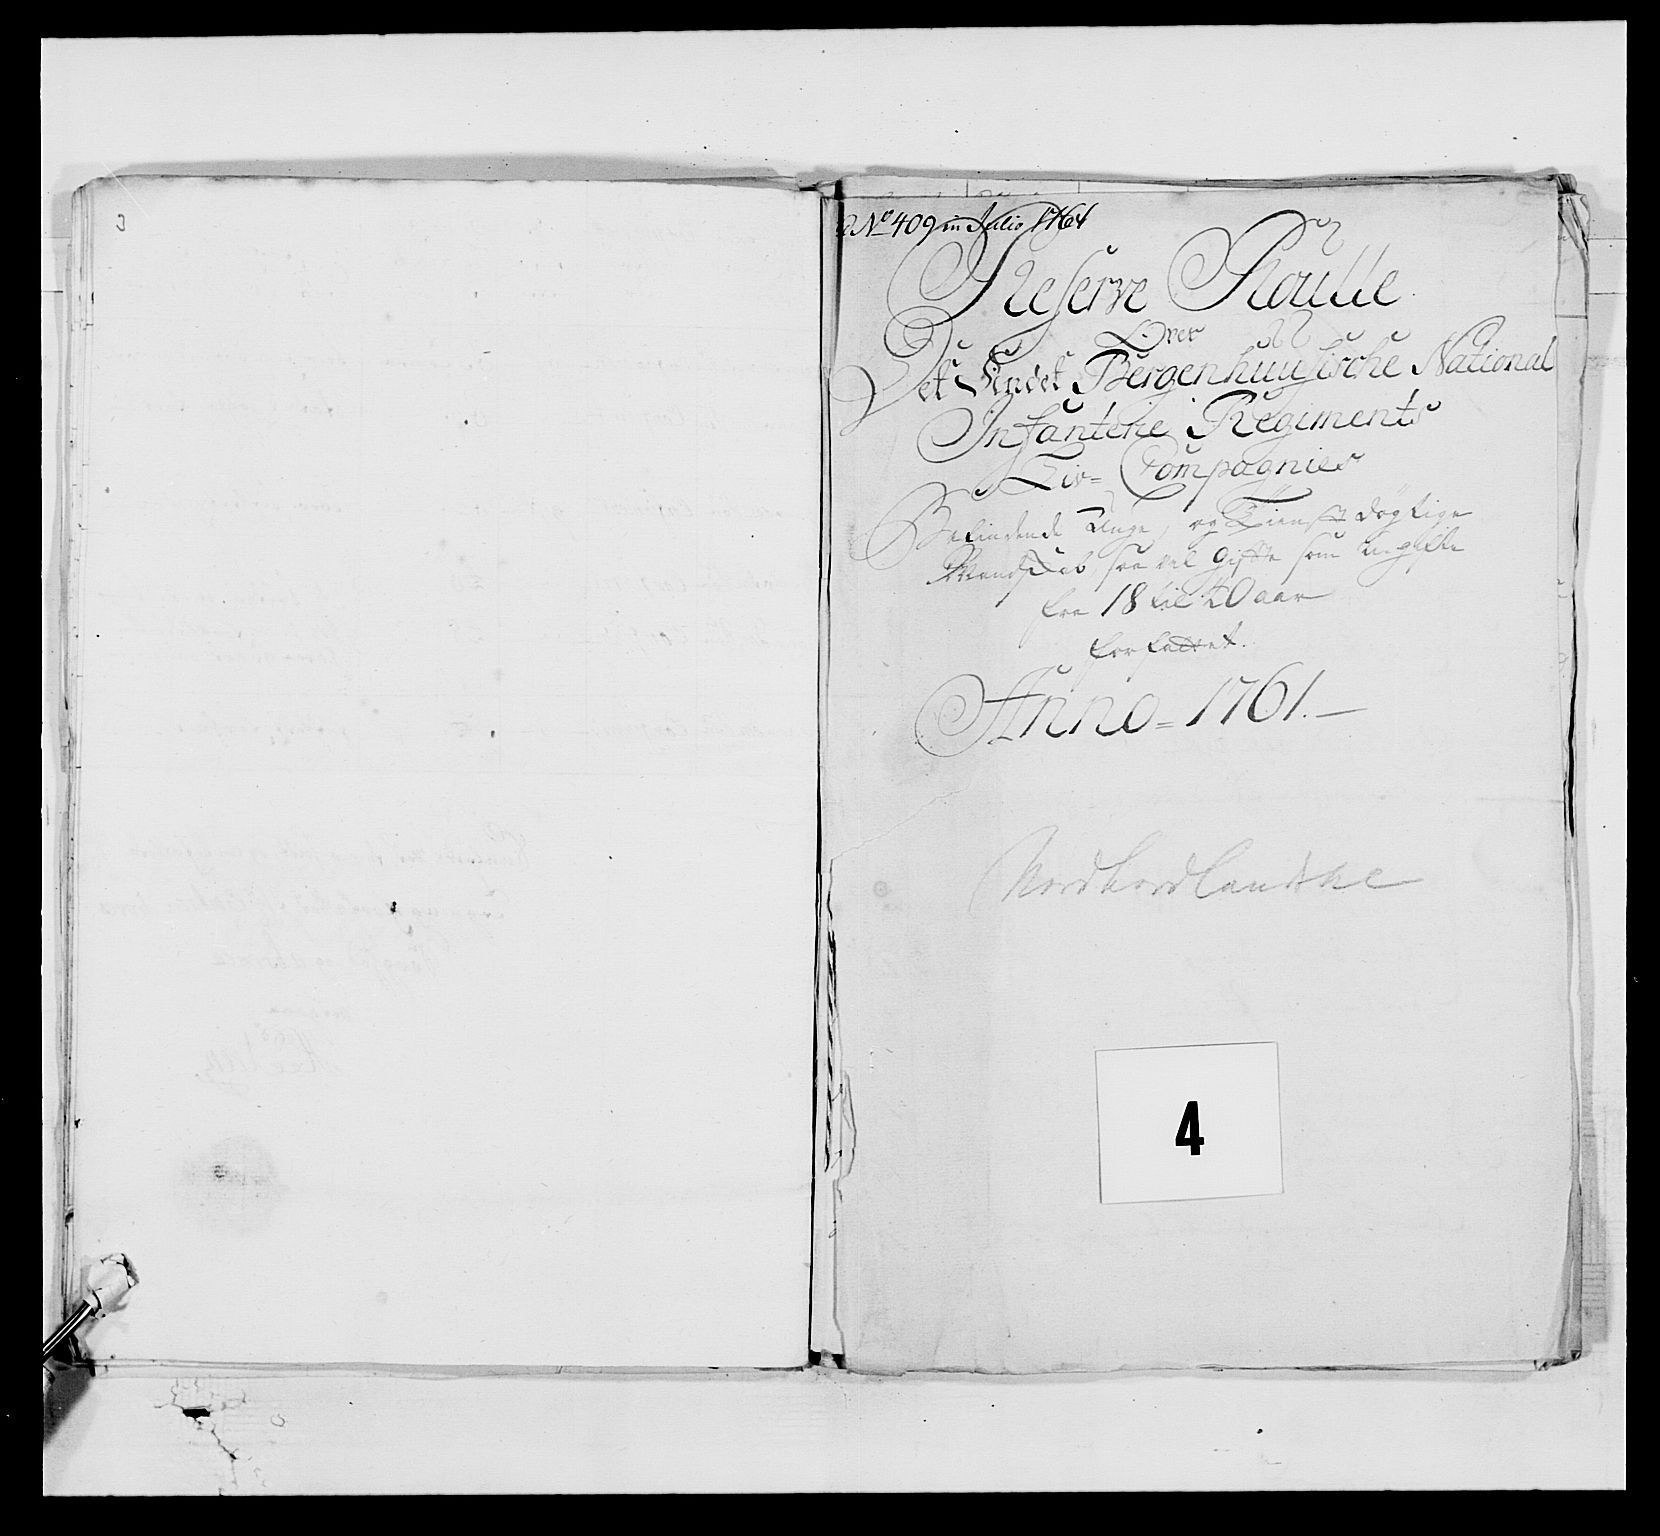 No 409 in Julio 1764
Reserve Roulle
Over
Det Andet Bergenhuusische National
Infanterie Regiments
Liv= Compagnies
Befindende Unge, og Tienstdögtige
Mandskab saa vel Gifte som Ugifte
fra 18 til 40 aar
forfattet.
Anno= 1761.
Nordhordlandske
4